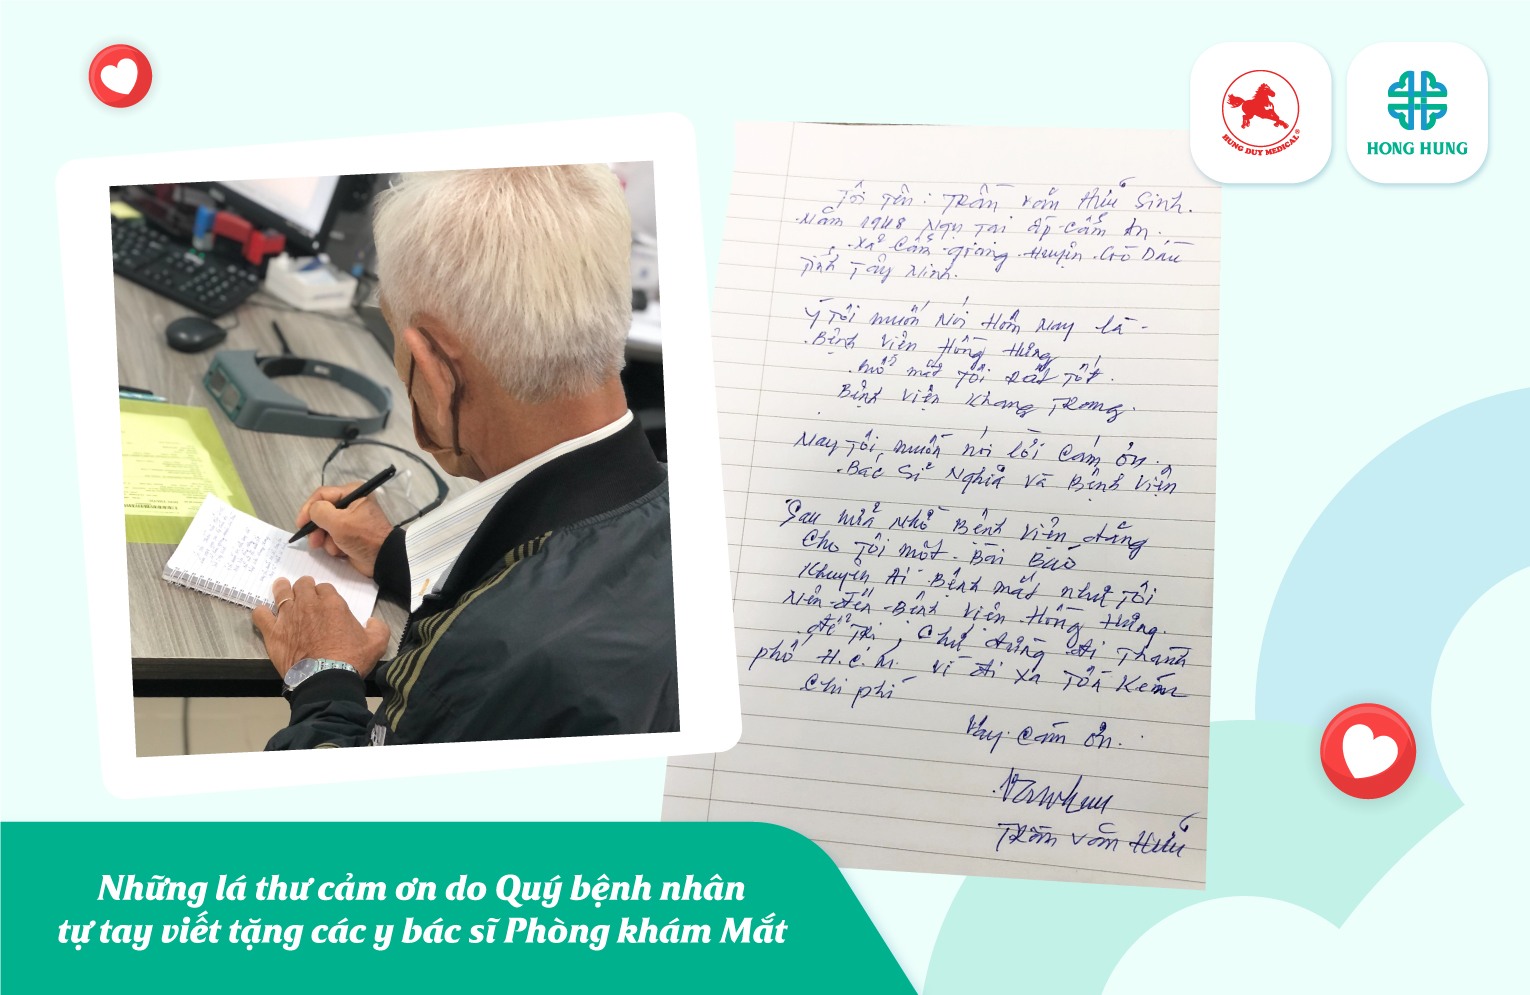 HUNG DUY MEDICAL®
HONG HUNG
Tôi Tên: Trần Văn Hữu Sinh.
Năm 1948 Ngụ Tại ấp Cẩm An.
Xã Cẩm Giang Huyện Gò Dầu
Tỉnh Tây Ninh.
Ý Tôi muốn Nói Hôm Nay là
Bệnh Viện Hồng Hưng
mổ mắt Tôi Rất Tốt.
Bệnh viện Khang Trang.
Nay Tôi muốn nói lời Cám ơn.
Bác Sĩ Nghĩa Và Bệnh Viện
Sau nữa Nhờ Bệnh Viện đăng
Cho Tôi một Bài Báo
Khuyên Ai Bệnh mắt như Tôi
Nên đến Bệnh Viện Hồng Hưng.
để Trị, Chứ đừng đi Thành
phố H.C.M. Vì đi xa Tốn Kém
Chi phí
Vậy Cám ơn.
Trần Văn Hữu
Những lá thư cảm ơn do Quý bệnh nhân
tự tay viết tặng các y bác sĩ Phòng khám Mắt